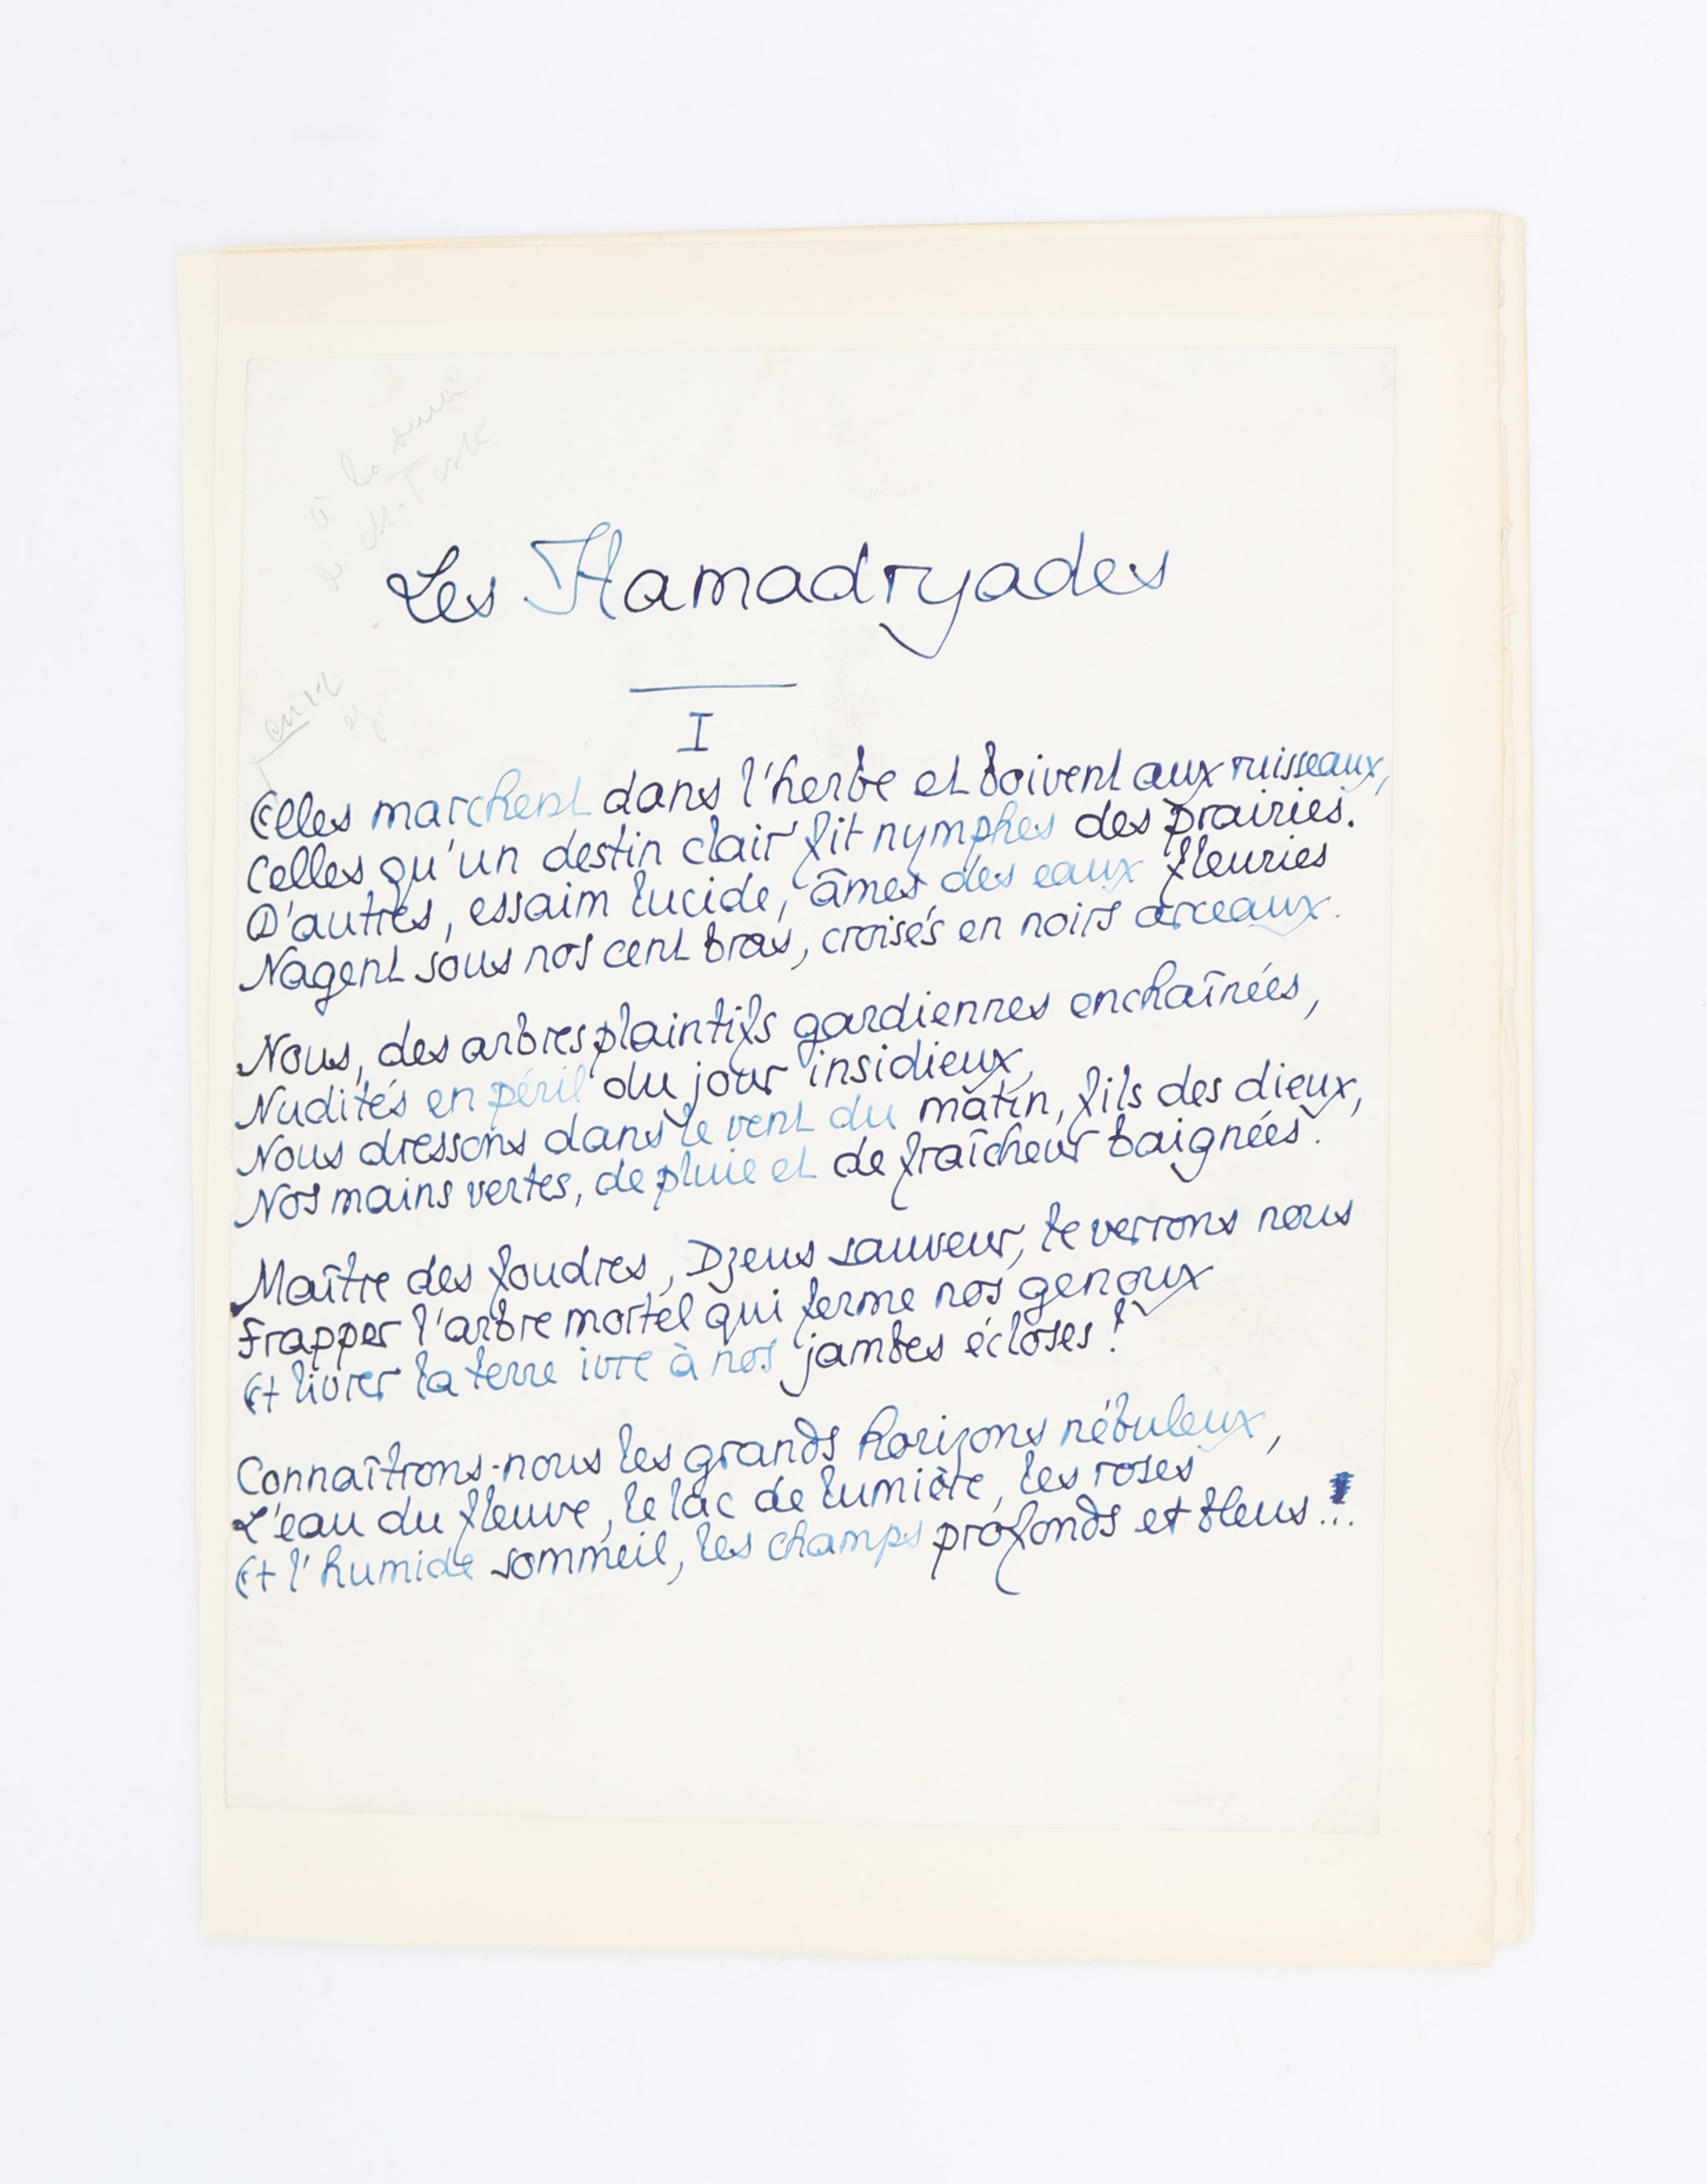 à la
Les Hamadryades
I
Elles marchent dans l'herbe et boivent aux ruisseaux,
Celles qu'un destin clair fit nymphes des prairies.
D'autres, essaim lucide, âmes des eaux fleuries
Nagent sous nos cent bras, croisés en noirs arceaux.
Nous, des arbres plaintifs gardiennes enchaînées,
Nudités en péril du jour insidieux,
Nous dressons dans le vent du matin, fils des dieux,
Nos mains vertes, de pluie et de fraîcheur baignées.
Maître des foudres, Dzeus sauveur, te verrons nous
Frapper l'arbre mortel qui ferme nos genoux
Et livrer la terre ivre à nos jambes écloses!
Connaîtrons-nous les grands horizons nébuleux,
L'eau du fleuve, le lac de lumière, les roses
Et l'humide sommeil, les champs profonds et bleus...